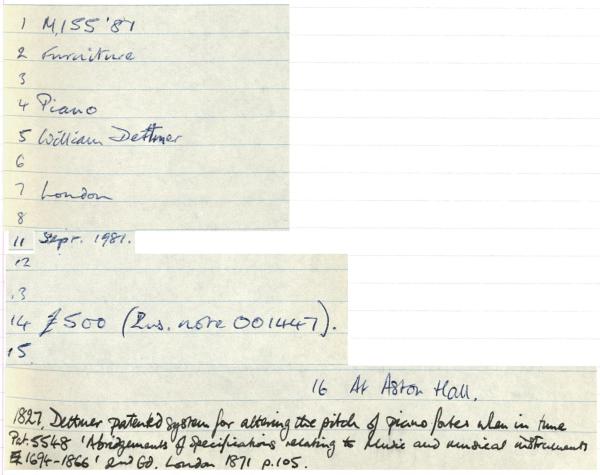 1 M,155'81
2 Furniture
3
4 Piano
5 William Dettmer
6
7 London
8
11 Sepr. 1981.
12
13
14 £500 (Ins. note 001447).
15.
16 At Aston Hall.
1827. Dettmer patented system for altering the pitch of piano fortes when in tune
Pat. 5548 'Abridgements of Specifications relating to Music and musical instruments
1694-1866' 2nd Ed. London 1871 p.105.